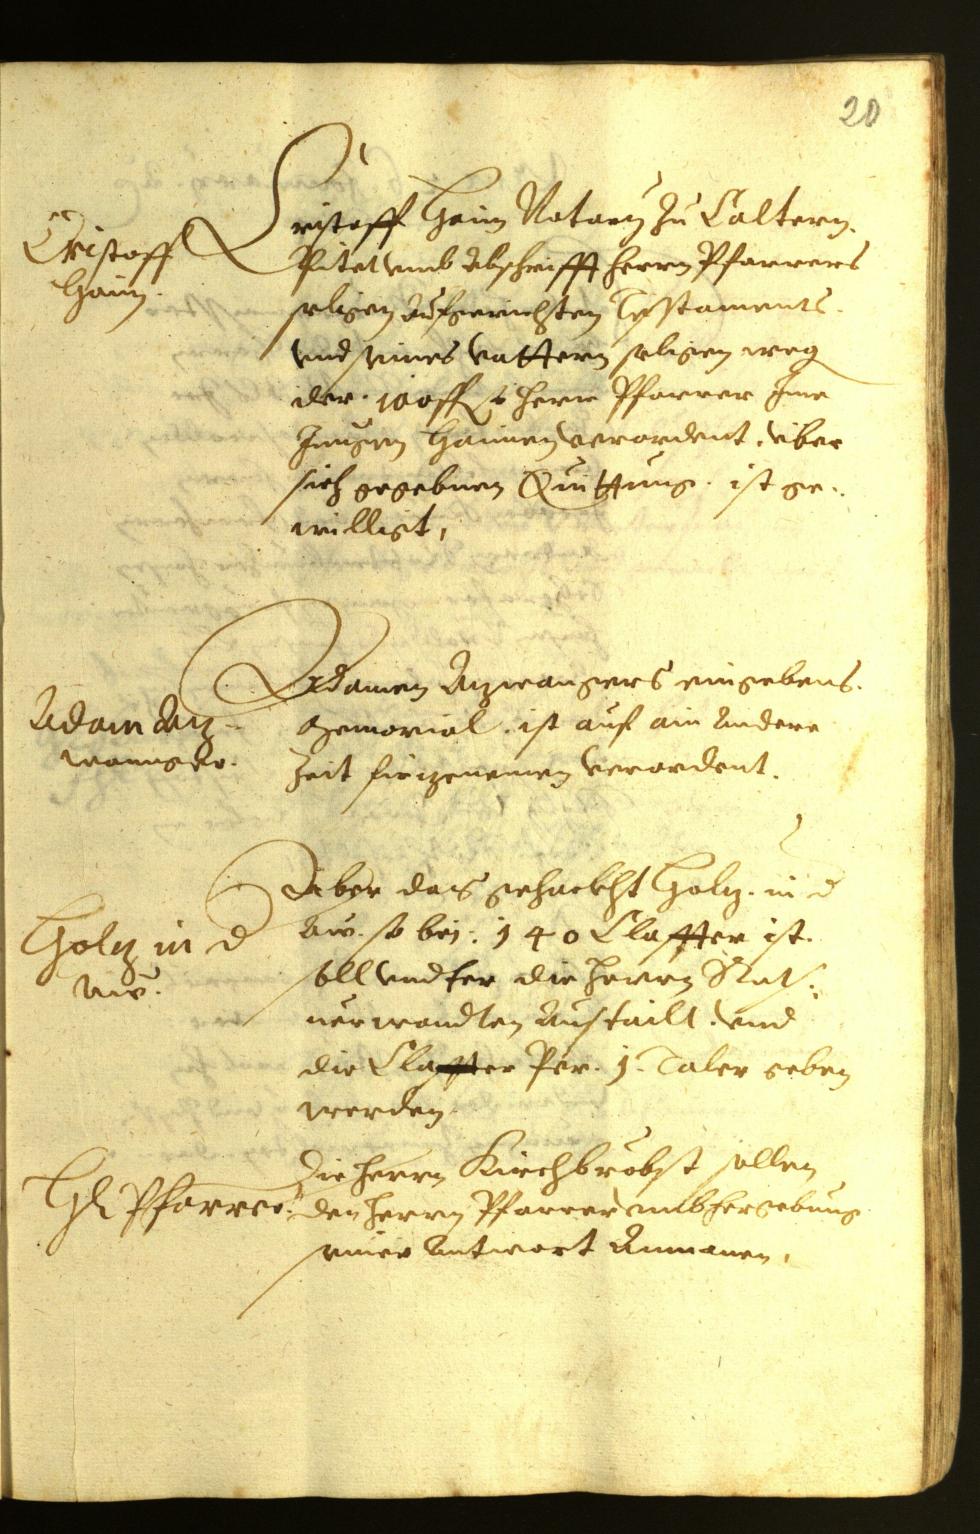 20
Cristoff
Haim.
Cristoff Haim Notary zu Caltern.
Pitet umb Abschrifft herrn Pfarrers
seligen aufgerichten Testaments.
und seines Vattern seligen weg
der. 100 ff herr Pfarrer Ime
Jungen Haimen verordent. über
sich gegebnen Quittung. ist ge-
willigt,
Adam Atz-
wanger.
Adamen Atzwangers eingebens.
Memorial. ist auf ain andere
Zeit fürzenemen verordent.
Holz in d
Au.
Über das gehackht Holz. in d
Au. so bei. 140 Claffter ist.
soll undter die herrn Rats-
verwandten Austailt. und
die Claffter Per. 1. Taler geben
werden.
H Pfarrer.
Die herrn Kirchbröbst sollen
den herrn Pfarrer umb hergebung
seiner Antwort Anmanen,